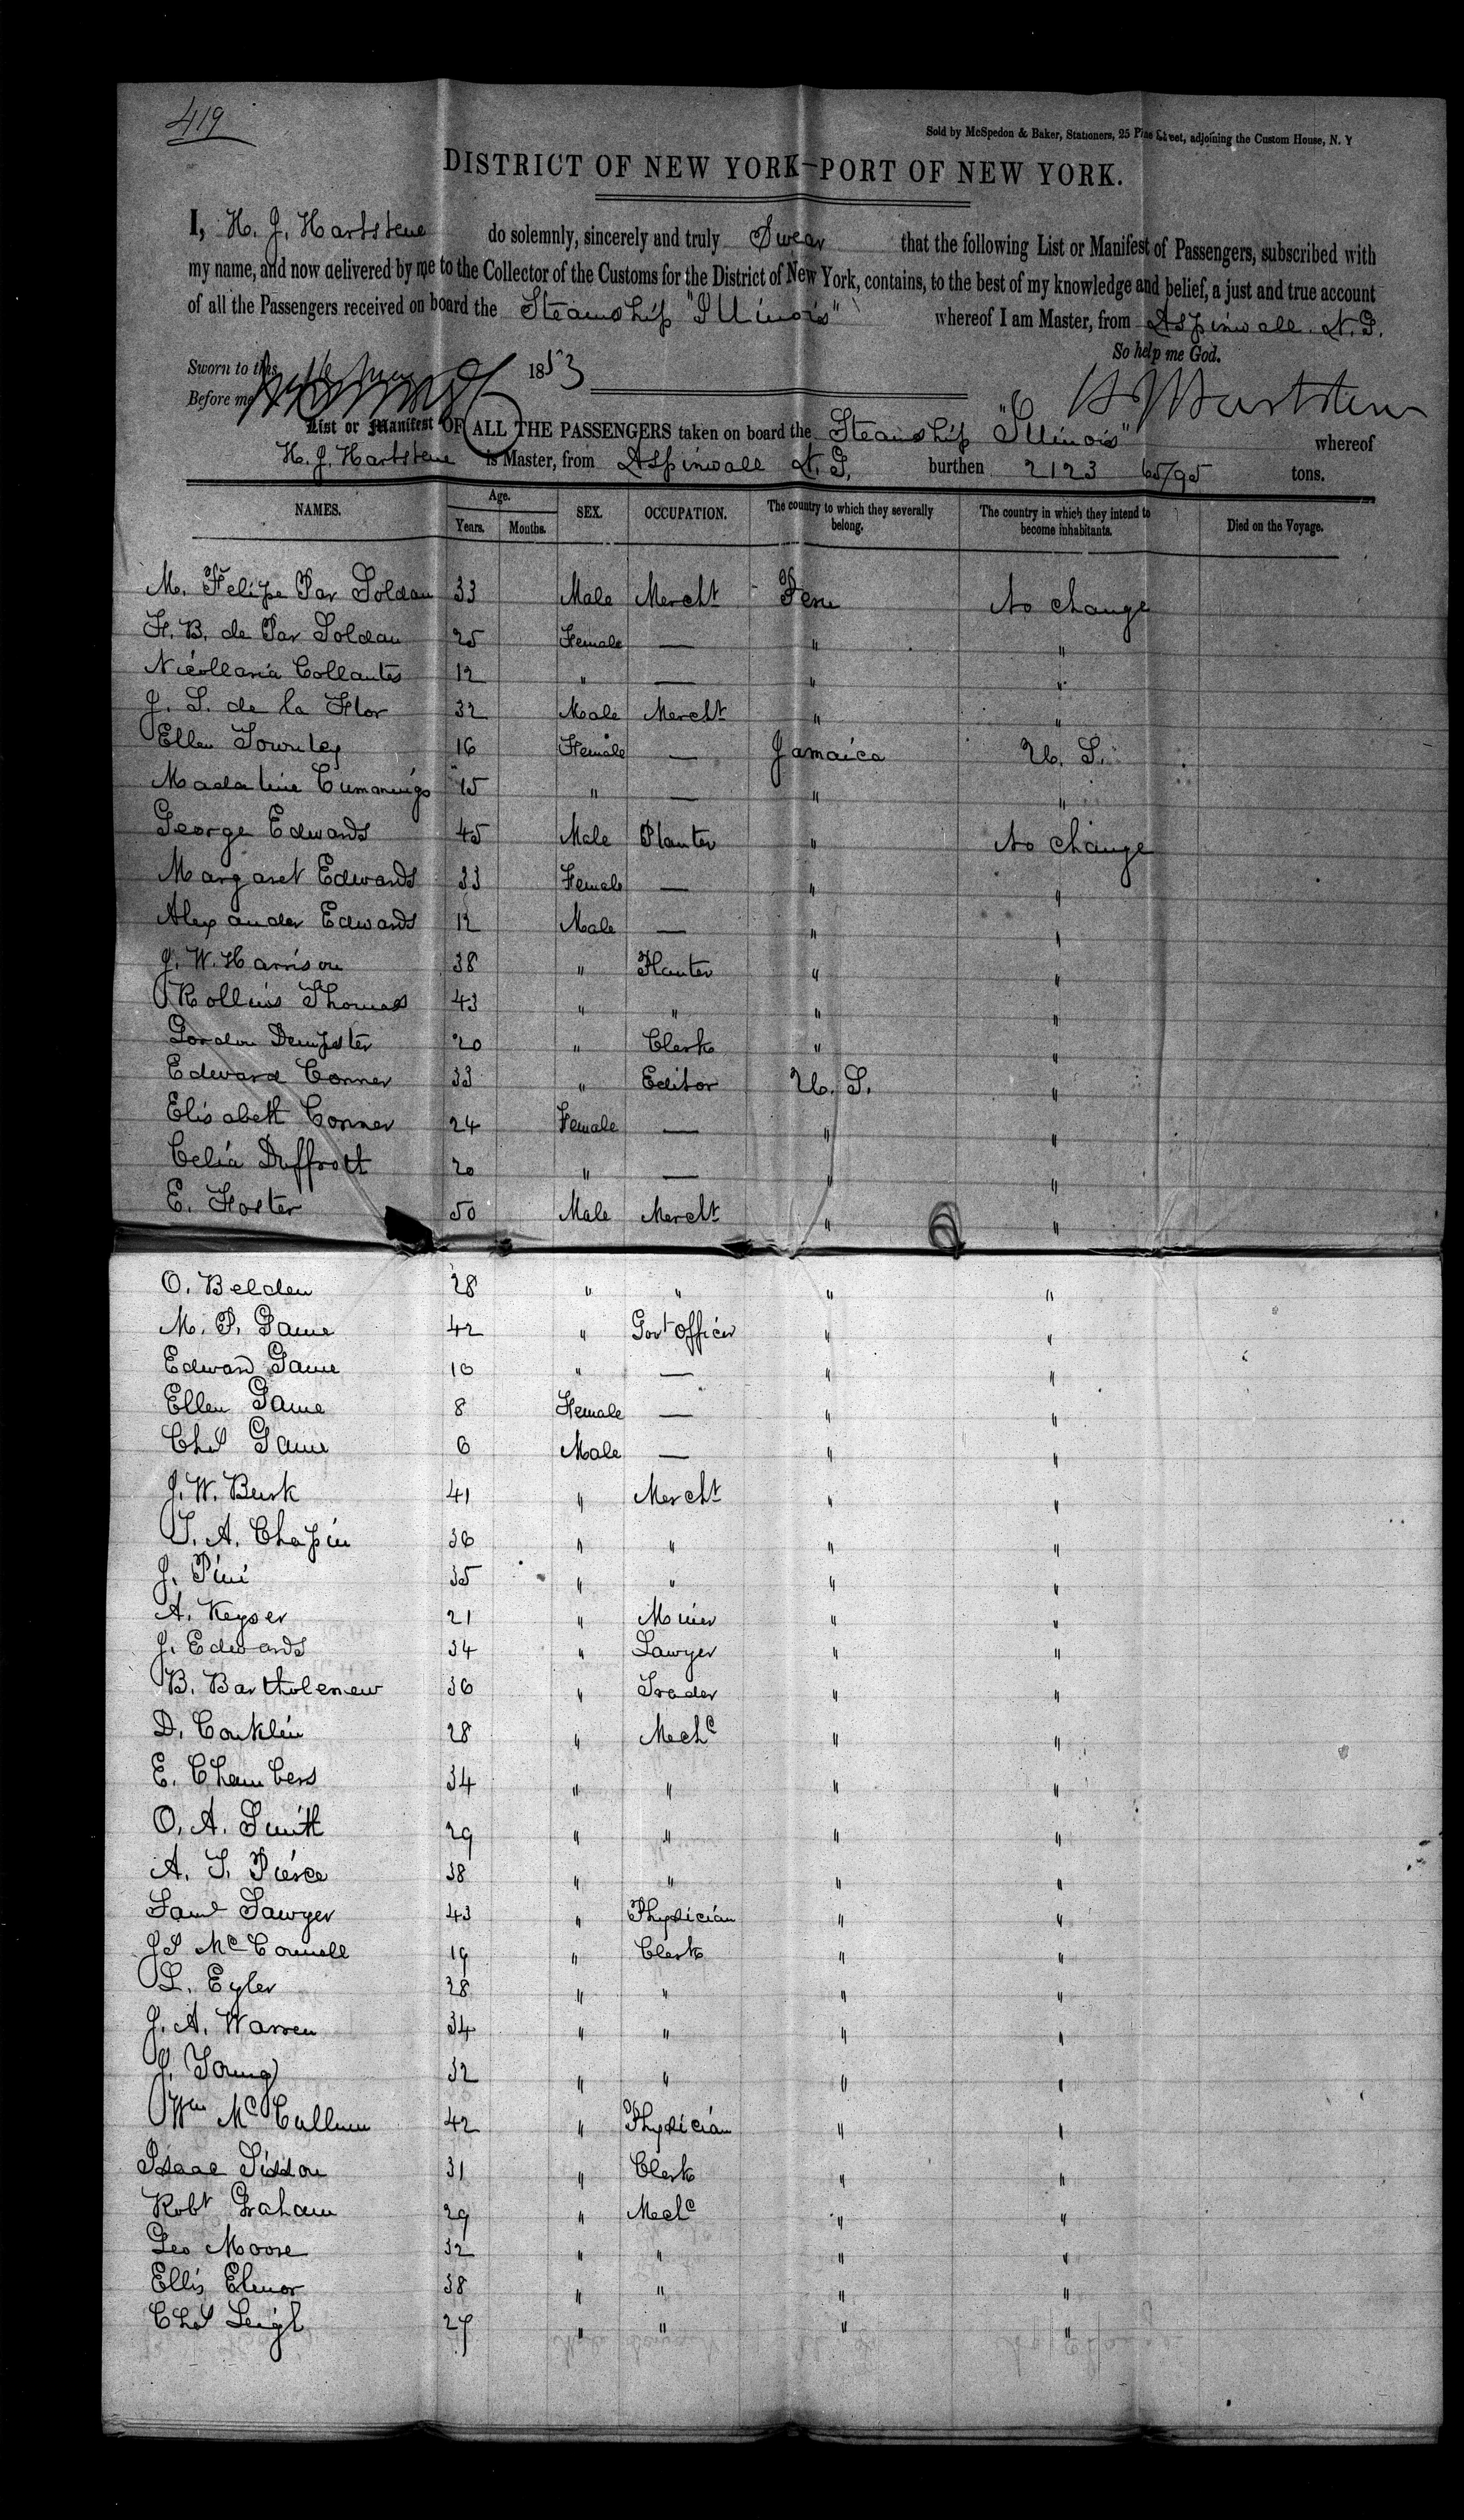 419
Sold by McSpedon & Baker, Stationers, 25 Pine Street, adjoining the Custom House, N. Y
DISTRICT OF NEW YORK—PORT OF NEW YORK.
I, H. J. Hartstene do solemnly, sincerely and truly Swear that the following List or Manifest of Passengers, subscribed with
my name, and now delivered by me to the Collector of the Customs for the District of New York, contains, to the best of my knowledge and belief, a just and true account
of all the Passengers received on board the Steamship "Illinois" whereof I am Master, from Aspinwall. N. G.
So help me God.
Sworn to this 1853
Before me H J Hartstene
List or Manifest OF ALL THE PASSENGERS taken on board the Steamship "Illinois" whereof
H. J. Hartstene is Master, from Aspinwall N. G. burthen 2123 65/95 tons.
NAMES. Age. Years. Months. SEX. OCCUPATION. The country to which they severally belong. The country in which they intend to become inhabitants. Died on the Voyage.
M. Felipe Par Soldan 33 Male Mercht Peru No change
F. B. de Par Soldan 25 Female — " "
Nicollaria Collantes 12 " — " "
J. S. de la Flor 32 Male Mercht " "
Ellen Townley 16 Female — Jamaica U. S.
Madaline Cummings 15 " — " "
George Edwards 45 Male Planter " No change
Margaret Edwards 33 Female — " "
Alexander Edwards 12 Male — " "
J. W. Harrison 38 " Planter " "
Rollins Thomas 43 " " " "
Gordon Dempster 20 " Clerk " "
Edward Conner 33 " Editor U. S. "
Elisabeth Conner 24 Female — " "
Celia Duffrott 20 " — " "
E. Foster 50 Male Mercht " "
O. Belden 28 " " " "
M. P. Game 42 " Govt officer " "
Edward Game 10 " — " "
Ellen Game 8 Female — " "
Chs Game 6 Male — " "
J. W. Burk 41 " Mercht " "
T. A. Chapin 36 " " " "
J. Pini 35 " " " "
A. Keyser 21 " Miner " "
J. Edwards 34 " Lawyer " "
B. Bartholemew 36 " Trader " "
D. Conklin 28 " Mechc " "
E. Chambers 34 " " " "
O. A. Smith 29 " " " "
A. T. Pierce 38 " " " "
Saml Sawyer 43 " Physician " "
J S McConnell 19 " Clerk " "
L. Eyler 28 " " " "
J. A. Warren 34 " " " "
J. Young 32 " " " "
Wm McCullum 42 " Physician " "
Isaac Sisson 31 " Clerk " "
Robt Graham 29 " Mechc " "
Geo Moore 32 " " " "
Ellis Elenor 38 " " " "
Chs Leigh 27 " " " "